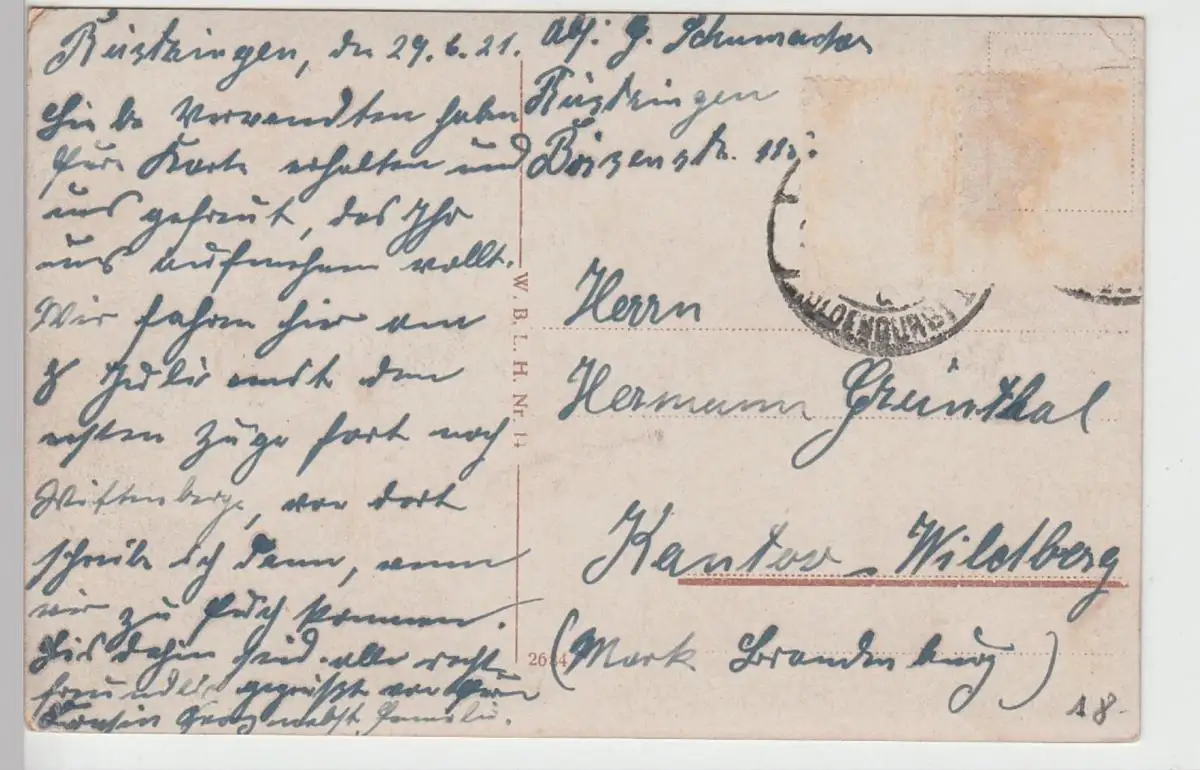 Rüstringen, den 29.6.21.
Liebe Verwandten haben
Eure Karte erhalten und
uns gefreut, das Ihr
uns aufnehmen wollt.
Wir fahren hier am
Juli mit dem
ersten Zuge fort nach
Wittenberge, von dort
schreibe ich dann, wenn
wir zu Euch kommen.
Bis dahin seid alle recht
freundlich gegrüßt von Euren
Cousin Georg nebst Familie.
W. B. L. H. Nr. 1
2684
Abs: G. Schumacher
Rüstringen
Börsenstr. 115
OLDENBURG
Herrn
Hermann Grünthal
Kantor Wildberg
(Mark Brandenburg)
18.